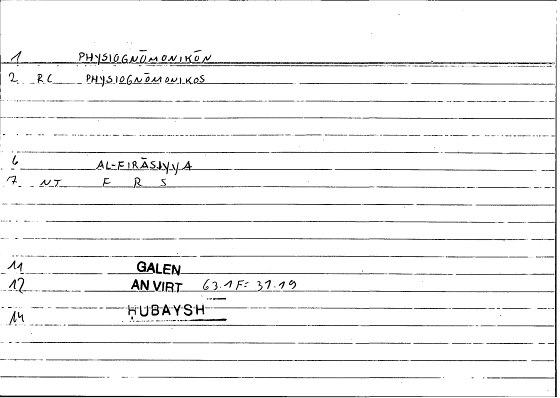 1 PHYSIOGNŌMONIKŌN
2 RC PHYSIOGNŌMONIKOS
6 AL-FIRĀSIYYA
7 NJ F R S
11 GALEN
12 AN VIRT 63.1 F: 31.19
14 HUBAYSH